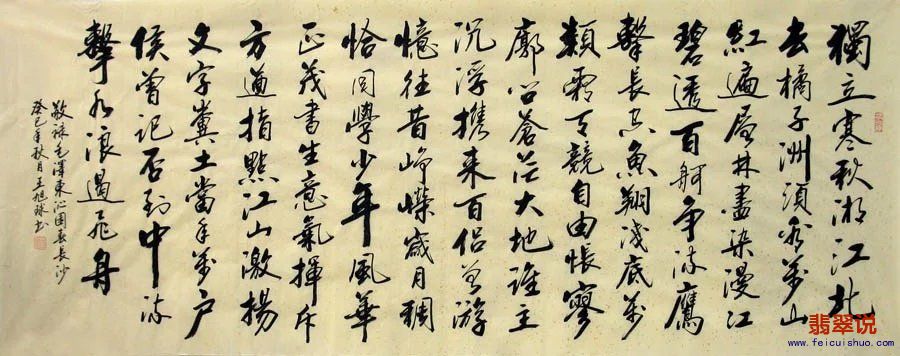 獨立寒秋湘江北
去橘子洲頭看萬山
紅遍層林盡染漫江
碧透百舸争流鷹
擊長空魚翔淺底萬
類霜天競自由悵寥
廓问蒼茫大地誰主
沉浮携來百侣曾游
憶往昔崢嶸歲月稠
恰同學少年風華
正茂書生意氣揮斥
方遒指點江山激揚
文字糞土當年萬户
侯曾記否到中流
擊水浪遏飛舟
敬録毛澤東沁園春長沙
癸巳年秋月王旭球书
翡翠说
www.feicuishuo.com